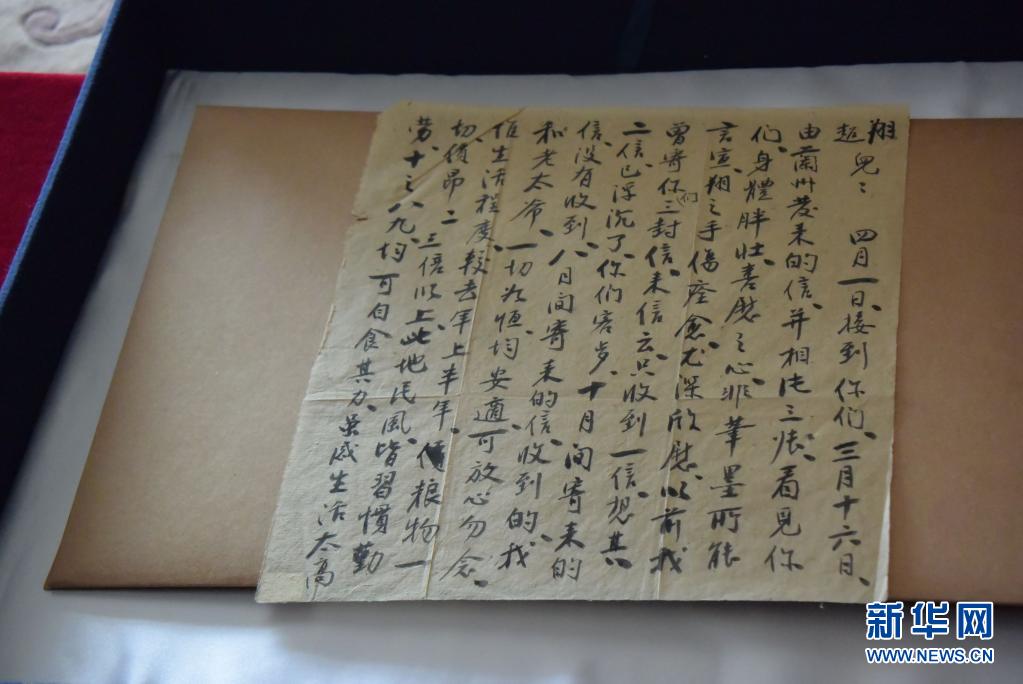 翔
起兒：四月一日、接到你们、三月十六日、
由蘭州發来的信、并相片三张、看見你
们、身體胖壯、喜慰之心、非筆墨所能
言宣、翔之手傷痊愈、尤深欣慰、以前我
曾寄你们三封信、来信云、只收到一信、想其
二信已浮沉了、你们客岁、十月间寄来的
信、没有收到、八月间寄来的信、收到的、我
和老太爷、一切如恒、均安適、可放心勿念、
惟生活程度、較去年上半年、粮物一
切價昂二三倍以上、此地民風、皆習慣勤
劳、十之八九、均可自食其力、虽感生活太高
新华网
WWW.NEWS.CN